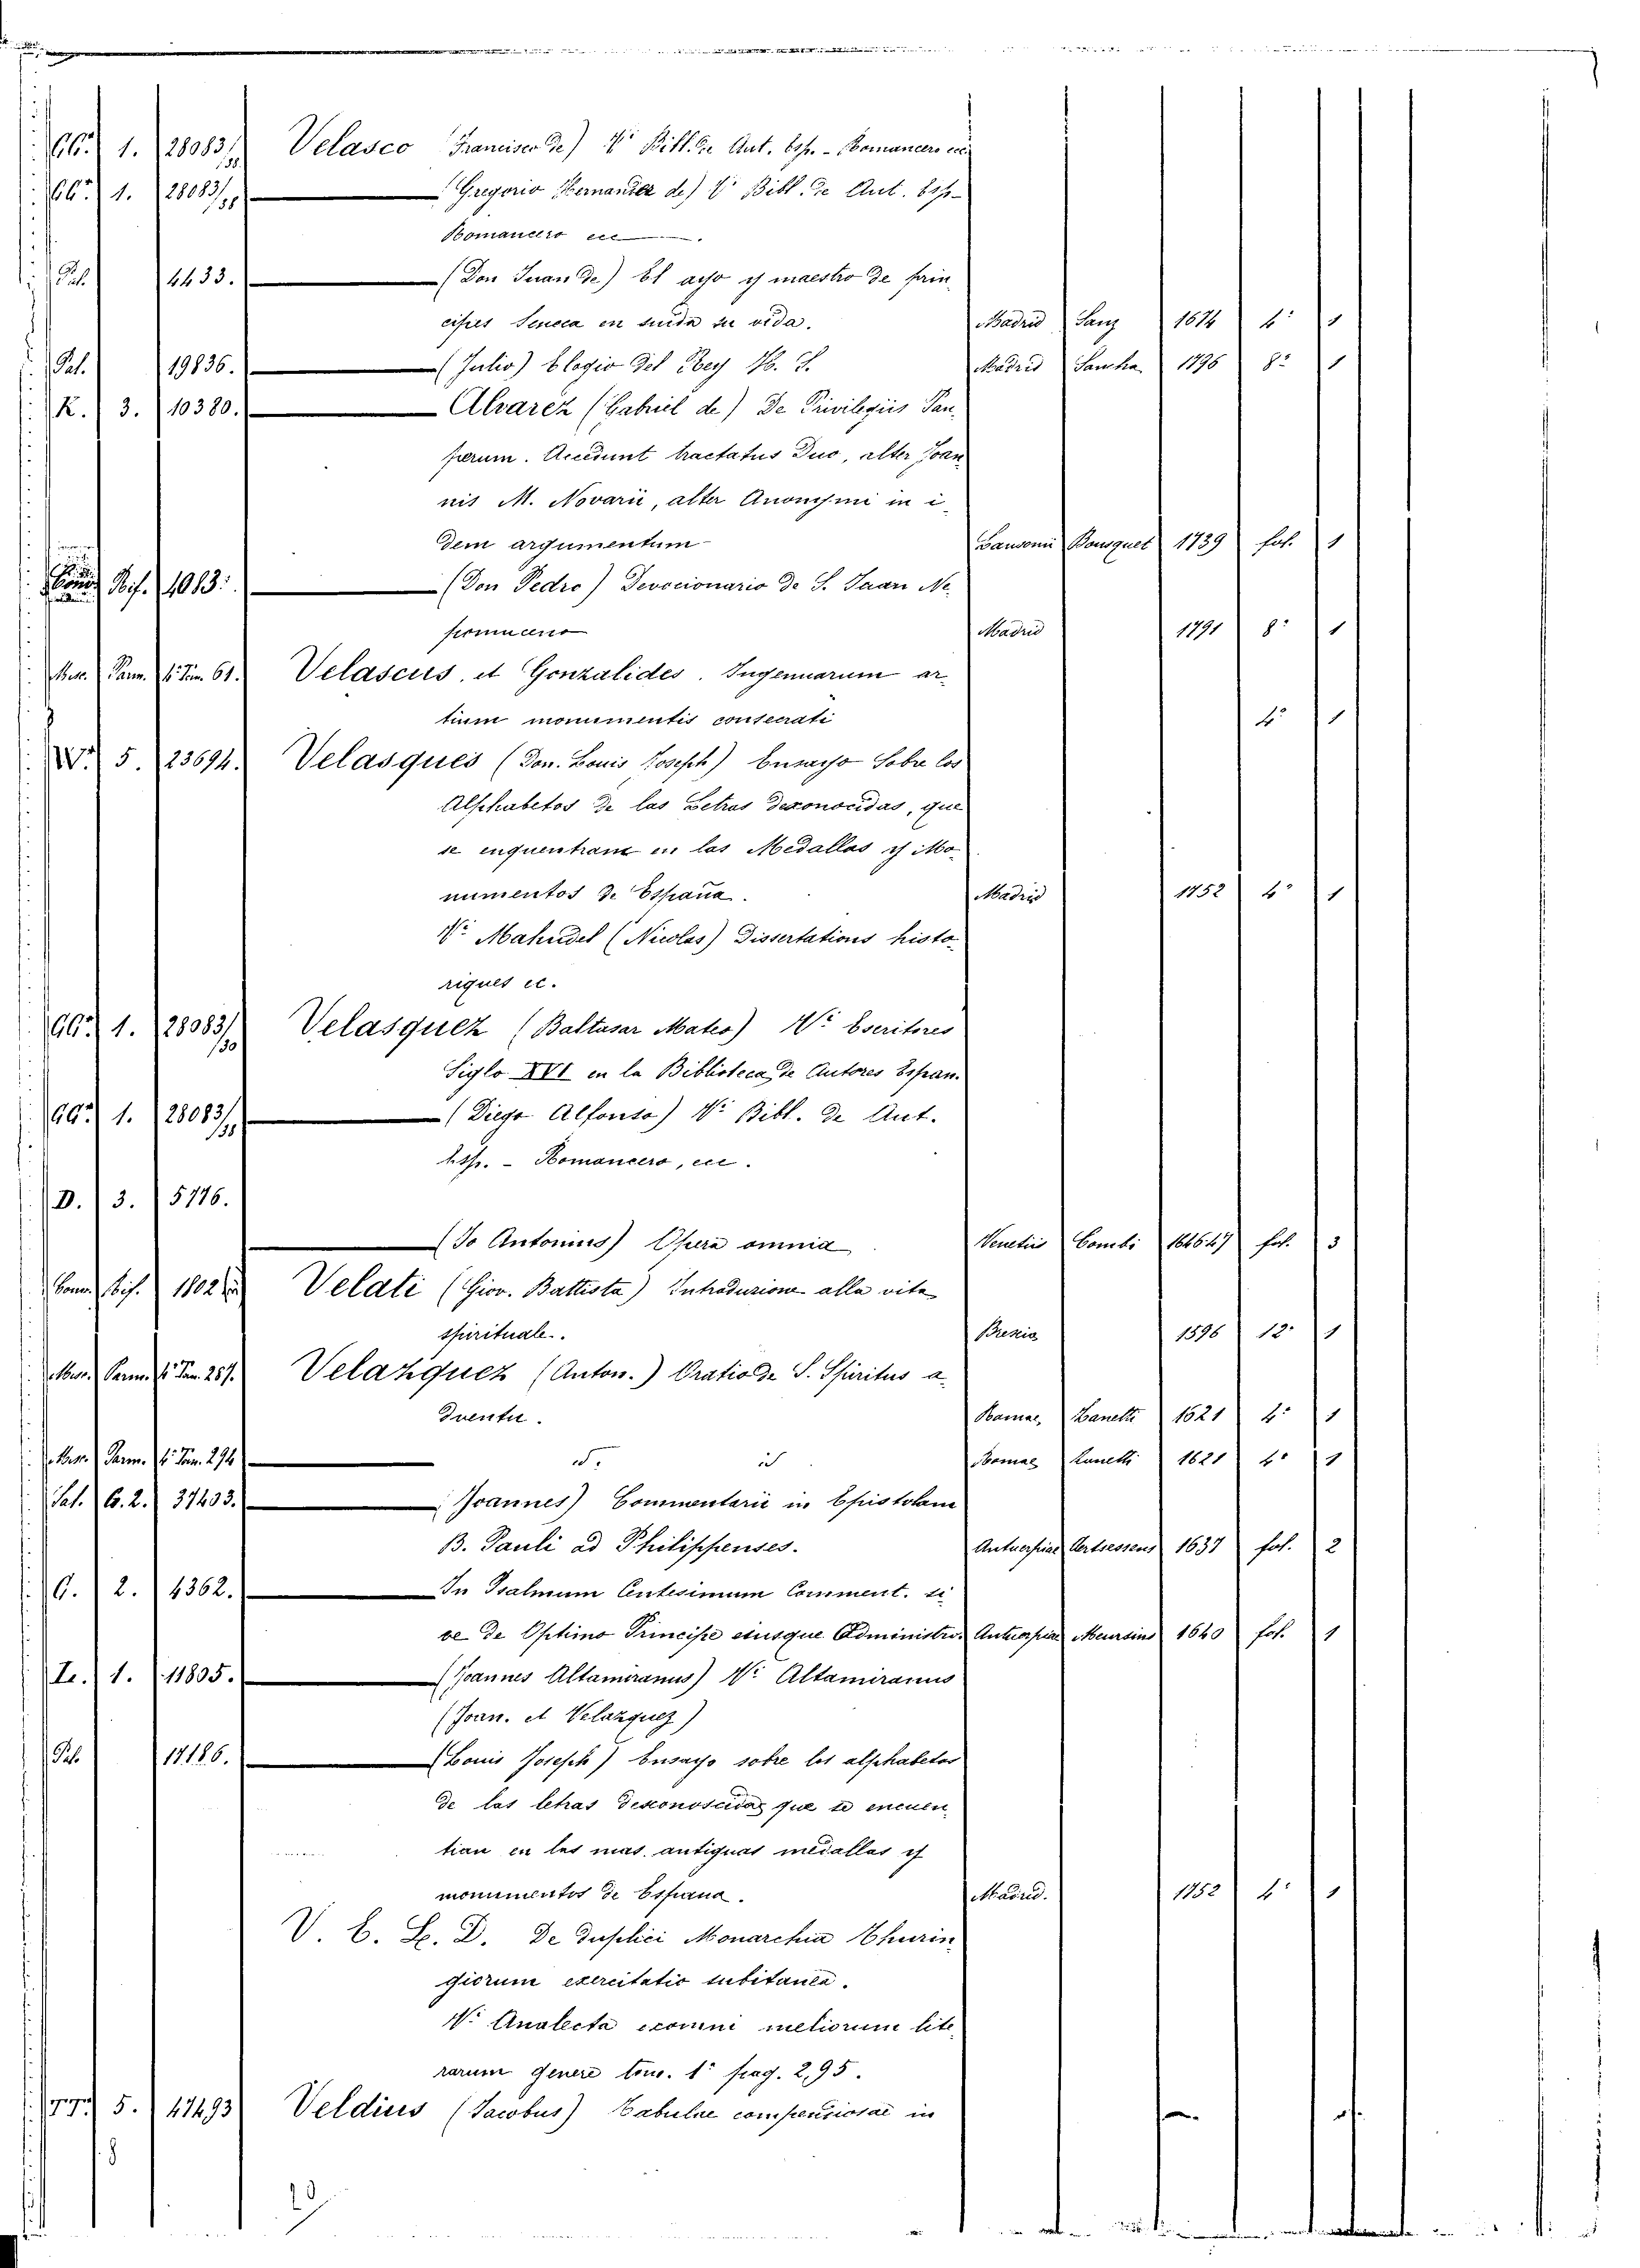 GG. 1. 28083/38 Velasco Francisco de) V. Bibl. de Aut. Esp. - Romancero ecc
GG. 1. 28083/38 Gregorio Hernandez de) V. Bibl. de Aut. Esp-
Romancero ecc
Pal. 4433. (Don Juan de) El ayo y maestro de prin
cipes Seneca en su vida. Madrid Sanz 1674 4° 1
Pal. 19836. (Julio) Elogio del Rey Madrid Sancha 1796 8° 1
K. 3. 10380. Alvarez (Gabriel de) De Privilegiis Pau
perum. Accedunt tractatus duo, alter Joan
nis M. Novarii, alter Anonymi in i
dem argumentum Lausonii Bousquet 1739 fol. 1
Rif. 1013. (Don Pedro) Devocionario de S. Juan Ne
pomuceno Madrid 1791 8° 1
Misc. Parm. 4° Tom. 61. Velascus, et Gonzalides. Ingenuarum ar
tium monumentis consecrati 4° 1
W. 5. 23694. Velasques (Don. Louis Joseph) Ensayo Sobre los
Alphabetos de las Letras desconocidas, que
se enquentrans en las Medallas y Mo
numentos de España. Madrid 1752 4° 1
V. Mahudel (Nicolas) Dissertations histo
riques ec.
GG. 1. 28083/30 Velasquez (Baltasar Mateo) V. Escritores
Siglo XVI en la Biblioteca de Autores Espan.
GG. 1. 28083/38 (Diego Alfonso) V. Bibl. de Aut.
Esp. - Romancero, ecc.
D. 3. 5776.
(Jo Antonius) Opera omnia Venetiis Combi 1646.47 fol. 3
Conv. Rif. 1802 Velati (Giov. Battista) Introduzione alla vita
spirituale. Brescia 1596 12° 1
Misc. Parm. 4° Tom. 287. Velazquez (Anton.) Oratio de S. Spiritus a
duentu. Romae, Zanetti 1621 4° 1
Misc. Parm. 4° Tom. 294 id. id. Romae Zanetti 1621 4° 1
Pal. G. 2. 37403. Joannes) Commentarii in Epistolam
B. Pauli ad Philippenses. Antuerpiae Aertsessens 1637 fol. 2
G. 2. 4362. In Psalmum Centesimum Comment. si
ve de Optimo Principe eiusque Administro. Antuerpiae Meursius 1640 fol. 1
L. 1. 11805. (Joannes Altamiranus) V. Altamiranus
(Joan. et Velazquez)
Pal. 17186. (Louis Joseph) Ensayo sobre los alphabetos
de las letras desconoscidas que se encuen
tian en les mas. antiguas medallas y
monumentos de España. Madrid. 1752 4° 1
V. E. L. D. De duplici Monarchia Thurin
giorum exercitatio subitanea.
V. Analecta exomni meliorum lite
rarum genere tom. 1° pag. 295.
TT. 5. 47493 Veldius (Jacobus) Tabulae compendiosae in
8